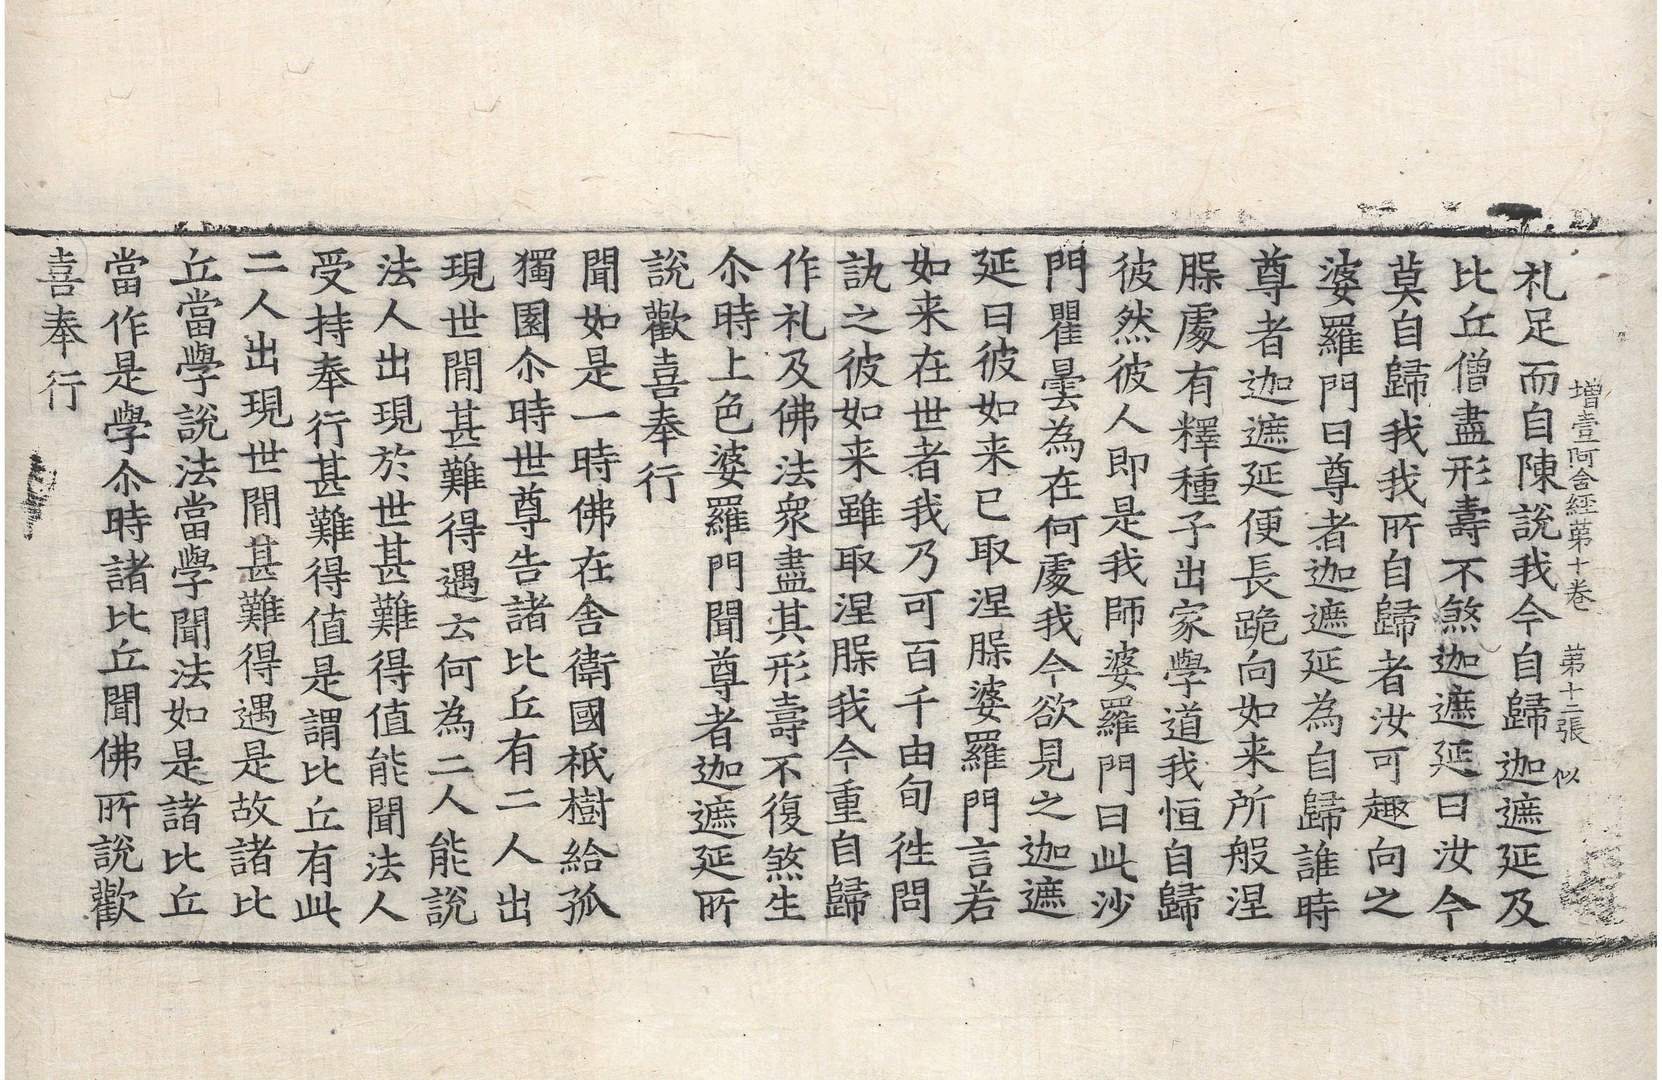 增壹阿含經苐十卷 苐十二張 似
礼足而自陳說我今自歸迦遮延及
比丘僧盡形壽不煞迦遮延曰汝今
莫自歸我我所自歸者汝可趣向之
婆羅門曰尊者迦遮延為自歸誰時
尊者迦遮延便長跪向如来所般涅
𦛔處有釋種子出家學道我恒自歸
彼然彼人即是我師婆羅門曰此沙
門瞿曇為在何處我今欲見之迦遮
延曰彼如来已取涅𦛔婆羅門言若
如来在世者我乃可百千由旬往問
訊之彼如来雖取涅𦛔我今重自歸
作礼及佛法衆盡其形壽不復煞生
尒時上色婆羅門聞尊者迦遮延所
說歡喜奉行
聞如是一時佛在舍衛國祇樹給孤
獨園尒時世尊告諸比丘有二人出
現世閒甚難得遇云何為二人能說
法人出現於世甚難得值能聞法人
受持奉行甚難得值是謂比丘有此
二人出現世閒甚難得遇是故諸比
丘當學說法當學聞法如是諸比丘
當作是學尒時諸比丘聞佛所說歡
喜奉行